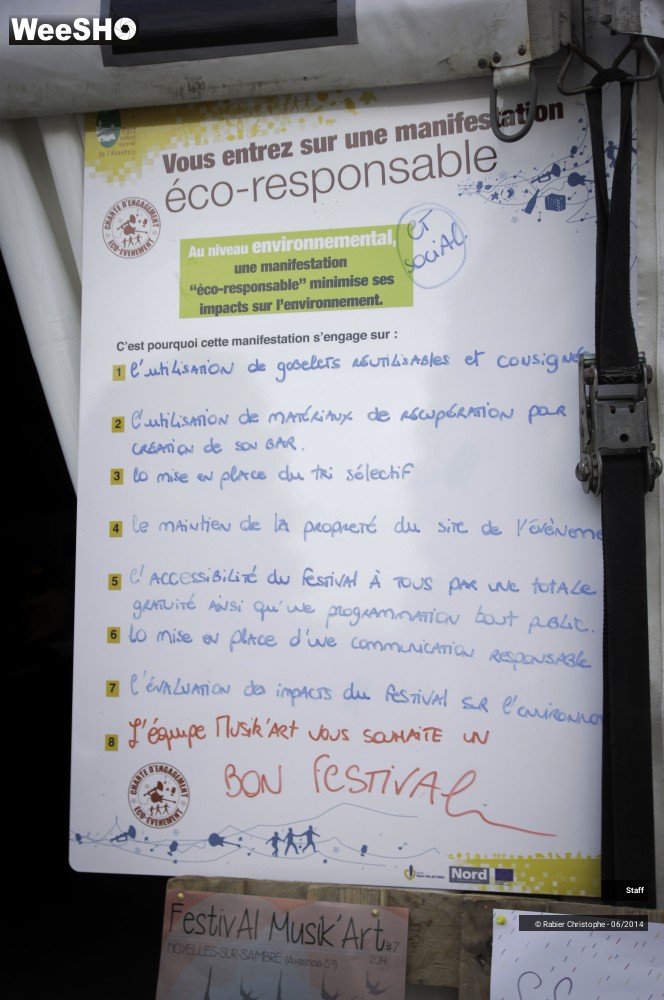 WeeSHO
de l'Avesnois
Vous entrez sur une manifestation
éco-responsable
CHARTE D'ENGAGEMENT
ECO-EVENEMENT
Au niveau environnemental,
une manifestation
"éco-responsable" minimise ses
impacts sur l'environnement.
ET
SOCIAL
C'est pourquoi cette manifestation s'engage sur :
1 l'utilisation de gobelets réutilisables et consignés
2 l'utilisation de matériaux de récupération pour
création de son bar.
3 la mise en place du tri sélectif
4 le maintien de la propreté du site de l'évèneme
5 l'accessibilité du festival à tous par une totale
gratuité ainsi qu'une programmation tout public.
6 la mise en place d'une communication responsable
7 l'évaluation des impacts du festival sur l'environne
8 L'équipe Musik'Art vous souhaite un
BON FESTIVAL
CHARTE D'ENGAGEMENT
ECO-EVENEMENT
Nord
Staff
FestivAl Musik'Art #7
NOYELLES-SUR-SAMBRE (Avesnois 59) 2014
© Rabier Christophe - 06/2014